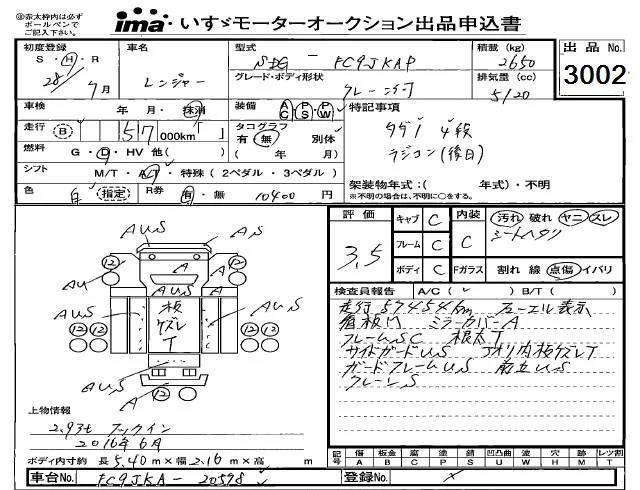 ◎赤太枠内は必ず
ボールペンで
ご記入下さい。
ima いすゞモーターオークション出品申込書
初度登録 車名 型式 積載(kg) 出品No.
S・H・R 28年7月 レンジャー SDG - FC9JKAP 2650
グレード・ボディ形状 クレーン付 排気量(cc) 5120
3002
車検 年・月・抹消 装備 AC PS PW 特記事項
走行 B 57 000km タコグラフ 有 無 別体
タダノ 4段
燃料 G・D・HV 他( ) ( 年 月)
ラジコン(後日)
シフト M/T・A/T・特殊(2ペダル・3ペダル)
架装物年式:( 年式)・不明
※不明の場合は、不明に○をする。
色 白 指定 R券 有・無 10400円
評価 3.5
キャブ C 内装 C 汚れ 破れ ヤニ スレ
シートヘタリ
フレーム C
ボディ C Fガラス 割れ 線 点傷 イバリ
検査員報告 A/C( ) B/T( )
走行57454km フューエル表示
看板門 ミラーカバーA
フレームSC 根太T
サイドガードUS アオリ内板ズレT
ガードフレームUS 前立US
クレーンS
AUS AS
12 A 12
AU A
AUS AUS AUS
板 ズレ T
12 12 12 12
AUS AUS
A 12 12
上物情報
2.93t フックイン
2016年6月
ボディ内寸約 長 5.40 m×幅 2.16 m×高 m
記号 傷 A 板金 B 腐 C 塗 P 錆 S 凹凸曲 U 波 W 穴 H 跡 M レツ割 T
車台No. FC9JKA - 20578 登録No.